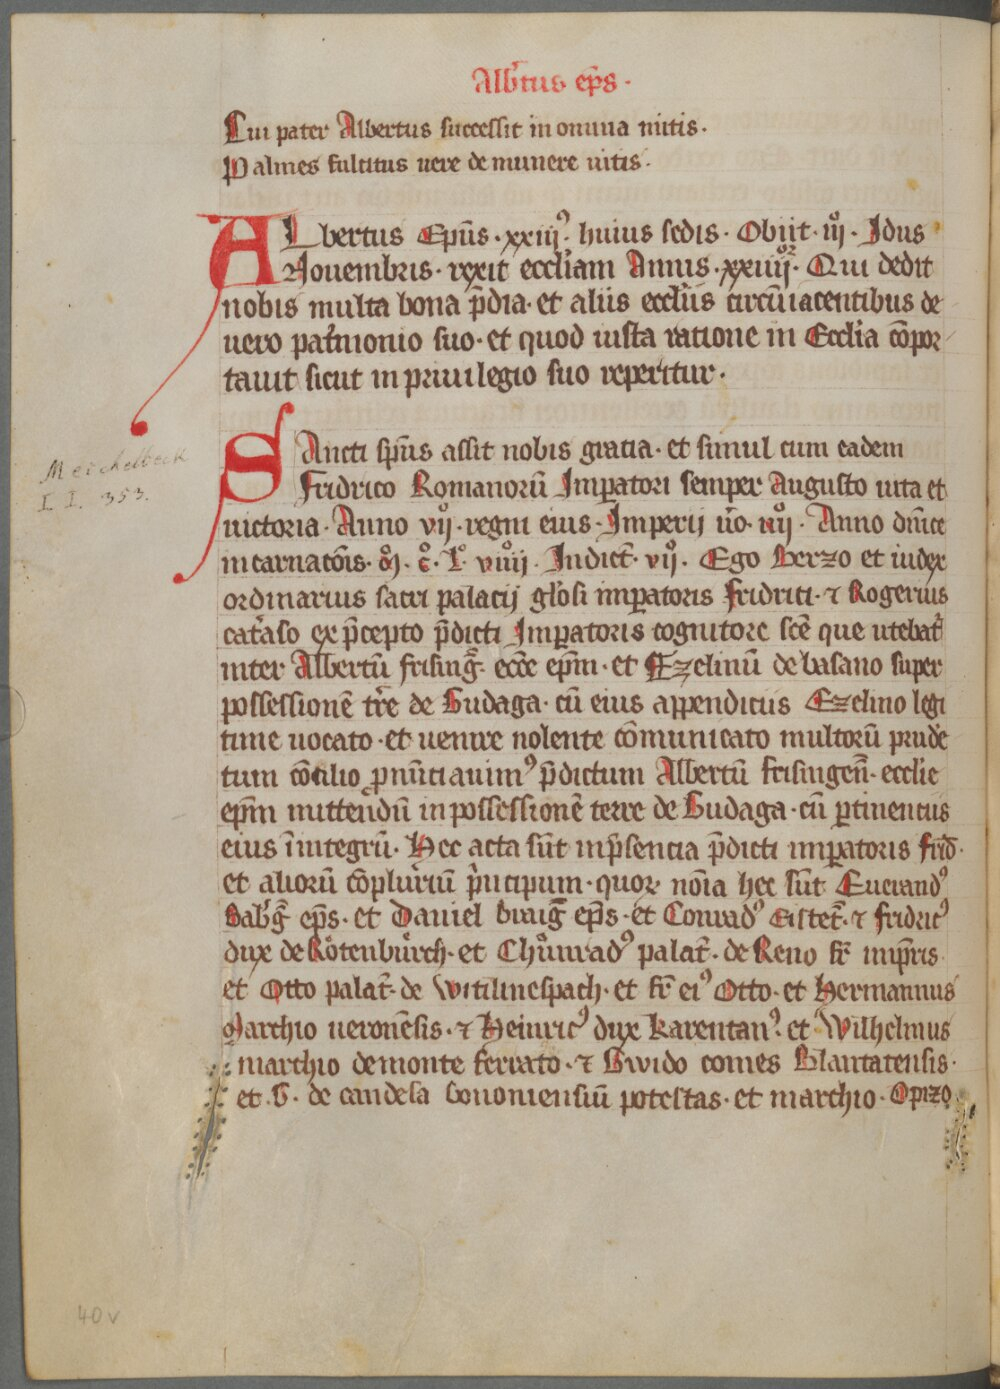 Alb̄tus ep̄s ·
Cui pater Albertus successit in omnia mitis ·
Palmes fultitus uere de munere uitis ·
ALbertus Epūs · xxiijꝰ · huius sedis · Obijt · iijº · Idus
Nouembris · rexit eccl̄iam Annis · xxiiijºʳ · Qui dedit
nobis multa bona p̄dia · et aliis eccl̄iis circūiacentibus de
uero pat̓monio suo · et quod iusta ratione in Eccl̄ia cōpor
tauit sicut in priuilegio suo reperitur ·
SAncti sp̄us assit nobis gratia · et simul cum eadem
Fridrico Romanorū Imp̄atori semper Augusto uita et
uictoria · Anno vijº · regni eius · Imperij ūo · iiijº · Anno dn̄ice
incarnatōis · Mº · cº · Lº · viiijº · Indict̄ · vijº · Ego Berzo et iudex
ordinarius sacri palacij gl̓osi imp̄atoris Fridrici · ⁊ Rogerius
cat̓aso ex p̄cepto p̄dicti Imp̄atoris cognitore scē que utebat̄
inter Albertū frisinḡ · ecc̄e ep̄m · et Ezelinū de basano super
possessionē t̄re de Gudaga · cū eius appendiciis Ezelino legi
time uocato · et uenire nolente cōmunicato multorū prudē
tum cōcilio ꝓnūciauimꝰ p̄dictum Albertū frisingen̄ · ecclie
ep̄m mittendū in possessionē terre de Gudaga · cū ꝑtinenciis
eius ī integrū · Hec acta sūt in p̄sencia p̄dicti imp̄atoris frid̄ ·
et aliorū cōpluriū p̓ncipum · quoꝝ nōia hec sūt Euerandꝰ
Bab̓ḡ ep̄s · et Daniel braiḡ ep̄s · et Conradꝰ Eistet̄ · ⁊ fridricꝰ
dux de Rotenburch · et Chunradꝰ palat̄ · de Reno fr̄ imp̄ris
et Otto palat̄ · de witilinespach · et fr̄ eiꝰ Otto · et Hermannus
Marchio ueronēsis · ⁊ Heinricꝰ dux karentanꝰ · et Wilhelmus
marchio de monte ferrato · ⁊ Gwido comes Blantatensis ·
et · G · de candela bononiensiū potestas · et marchio · Opizo
Meichelbeck
I I. 353.
40v